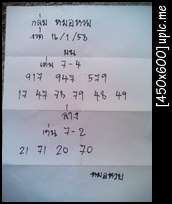 กลุ่ม หมอหวาน
งวดที่ 16/1/58
บน
เด่น 7-4
917 947 579
17 47 78 79 48 49
ล่าง
เด่น 7-2
21 71 20 70
หมอหวาน
[450x600] upic.me